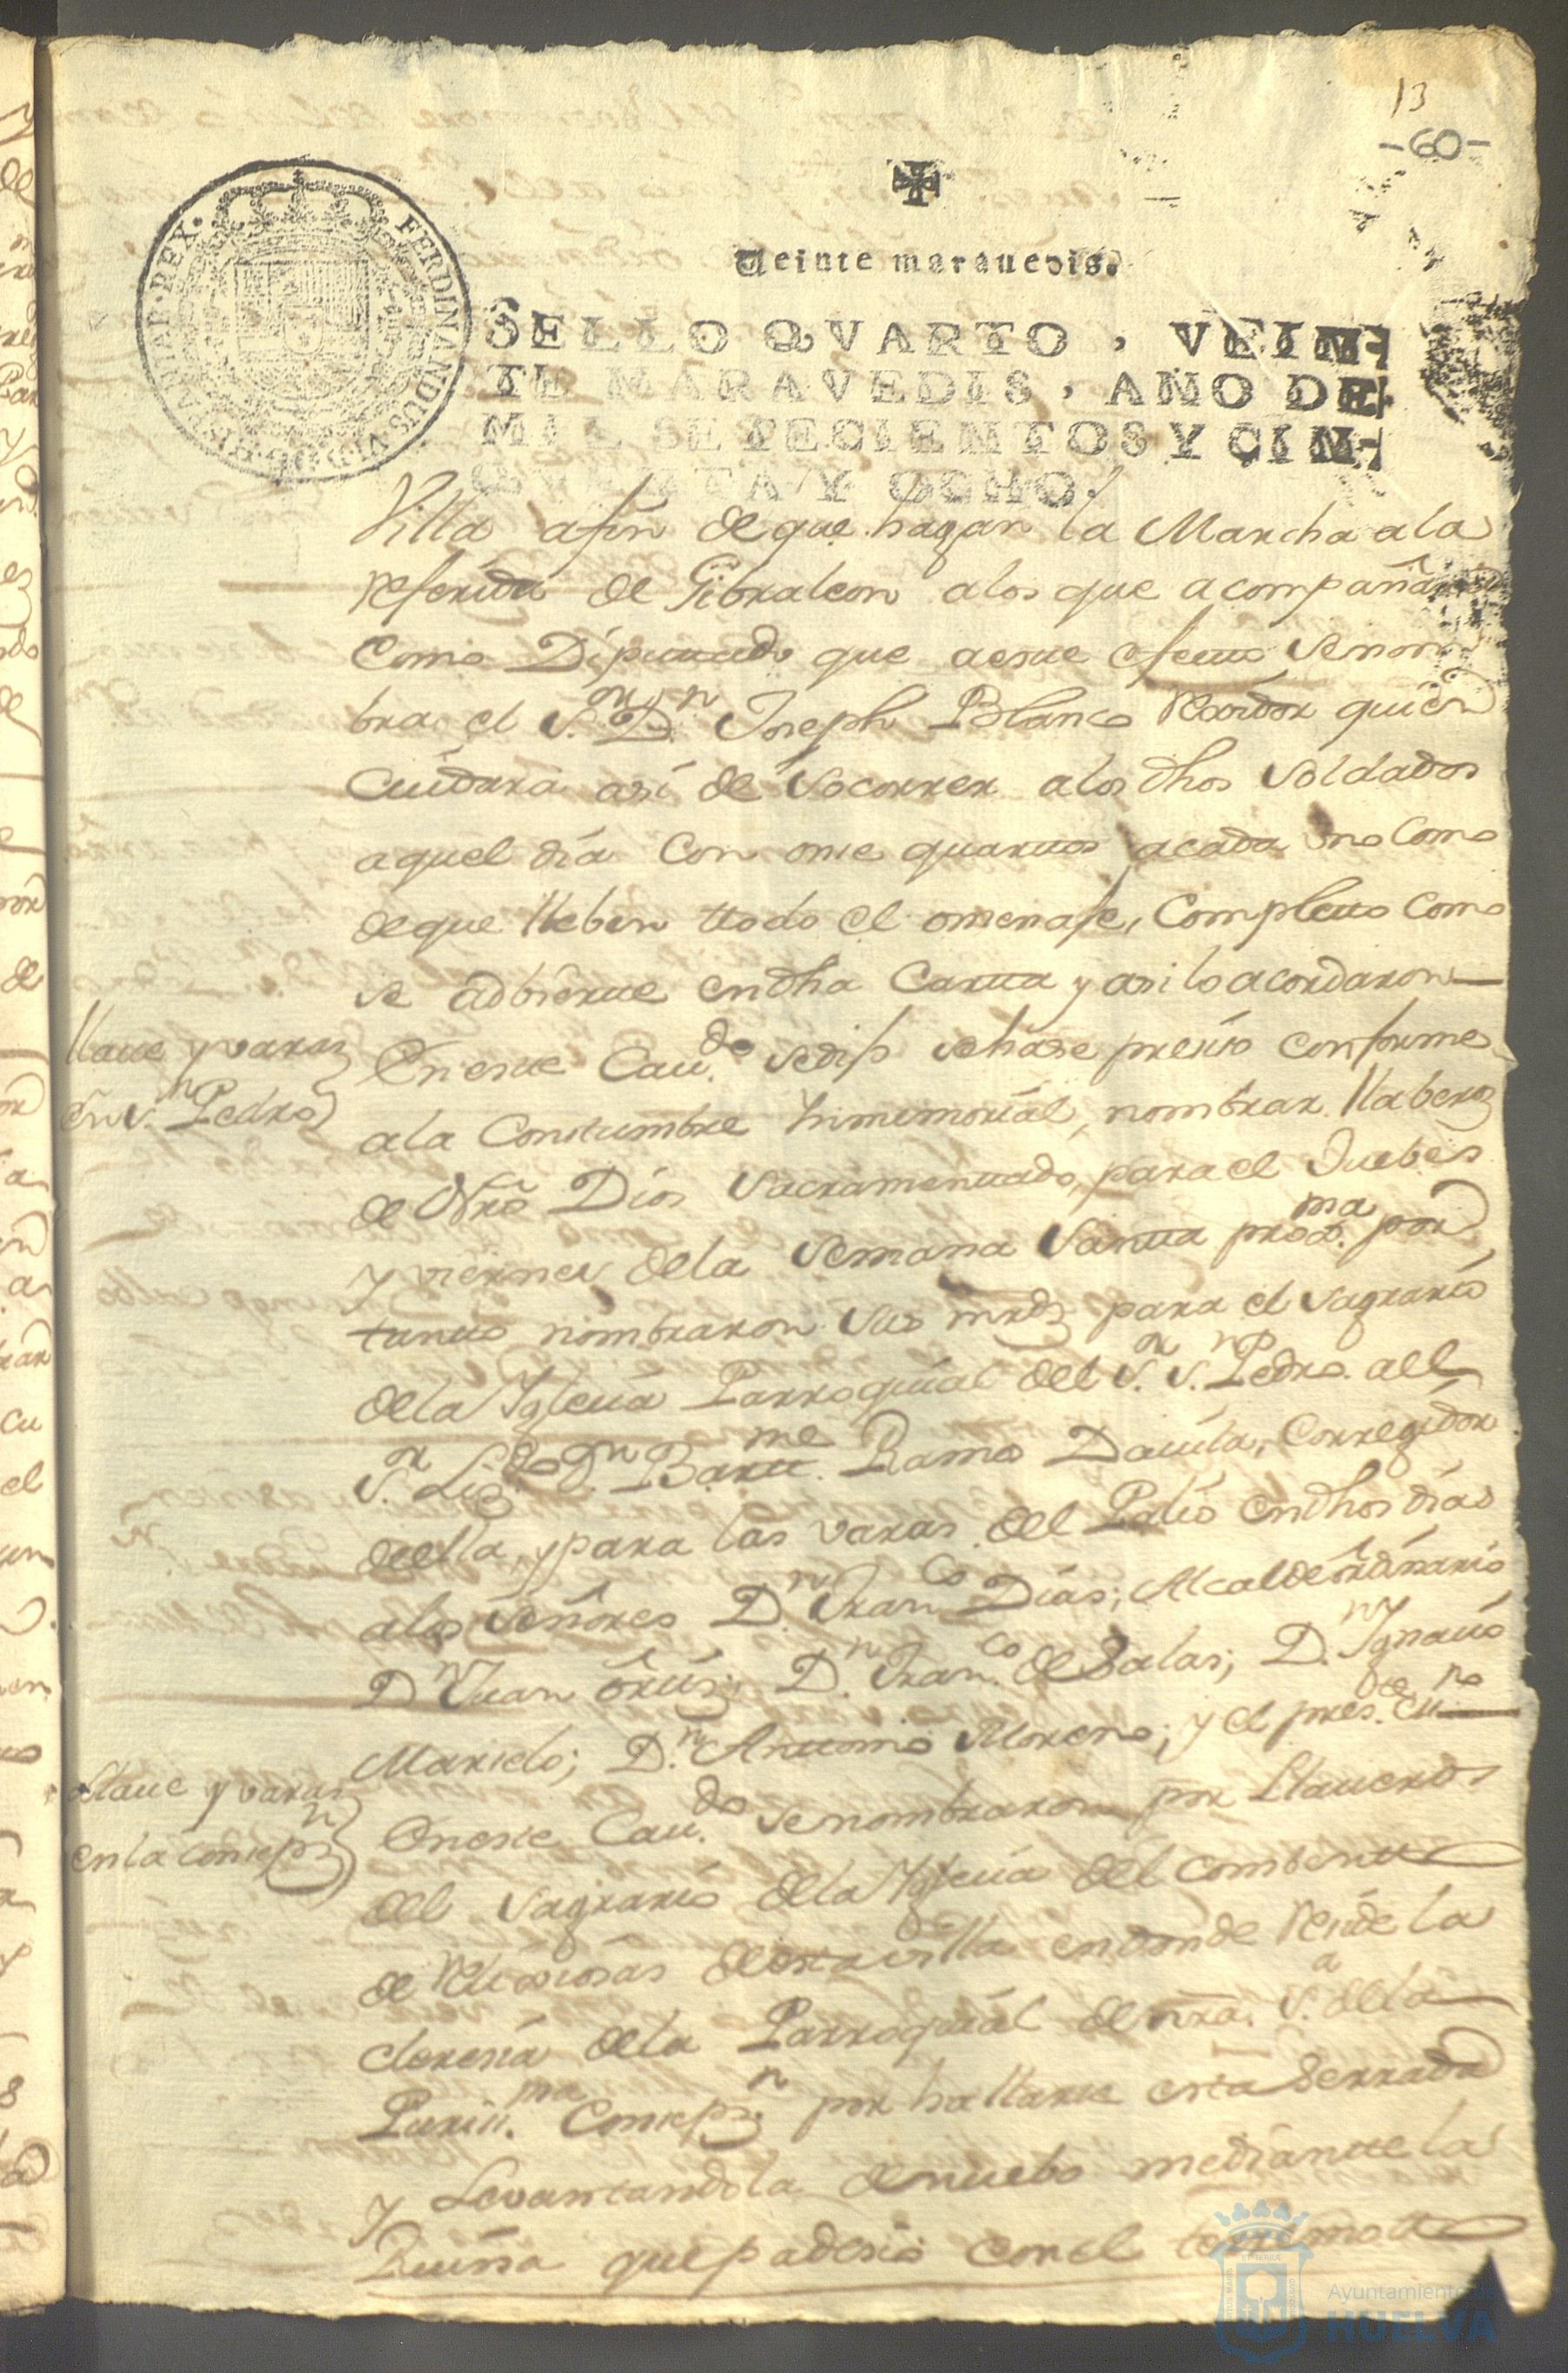 13
-60-
Veinte marauedis.
FERDINANDUS·VI·D·G·HISPANIAR·REX·
SELLO QVARTO, VEIN-
TE MARAVEDIS, AÑO DE
MIL SETECIENTOS Y CIN-
QVENTA Y OCHO.
Villa afin de que hagan la Marcha ala
referida de Gibraleon alos que acompañara
Como Diputtado que aeste efectto Senom
bra el S.or D.n Joseph Blanco Rexidor quien
Cuidara asi de Socorrer alos dhos Soldados
aquel dia Con onse quarttos acada uno Como
deque lleben ttodo el omenaje, Completto Como
se adbierte endha Cartta y asi lo acordaron
llaue y varas
en S.n Pedro
Eneste Cau.do sedijo sehase presiso conforme
ala Constumbre Inmemorial, nombrar llaberos
de Nro Dios Sacramenttado, para el Juebes
y viernes dela Semana Santta prox.ma por
tantto nombraron Sus mrds para el Sagrario
dela Yglesia Parroquial del S.or S.n Pedro all
S.or Liz.do D.n Bartt.me Ramos Dauila, Corregidor
deella, y para las varas del Palio endhos dias
alos Señores D.n Fran.co Dias; Alcalde ordinario
D.n Juan ortiz; D.n Fran.co de Salas; D.n Ygnacio
Marielo; D.n Anttonio Moreno; y el pres.te es.no
llaue y varas
en la Consepz.n
Eneste Cau.do Senombraron por Llaueros
del Sagrario dela Yglesia del Combentto
de Relixiosas deesta villa endonde Reside la
cleresia dela Parroquial de nra. S.a dela
Puris.ma Consepz.n por hallarse esta Serrada
y Levantandola denuebo mediantte la
Ruina que padesio con el terremotto
Ayuntamiento de
HUELVA